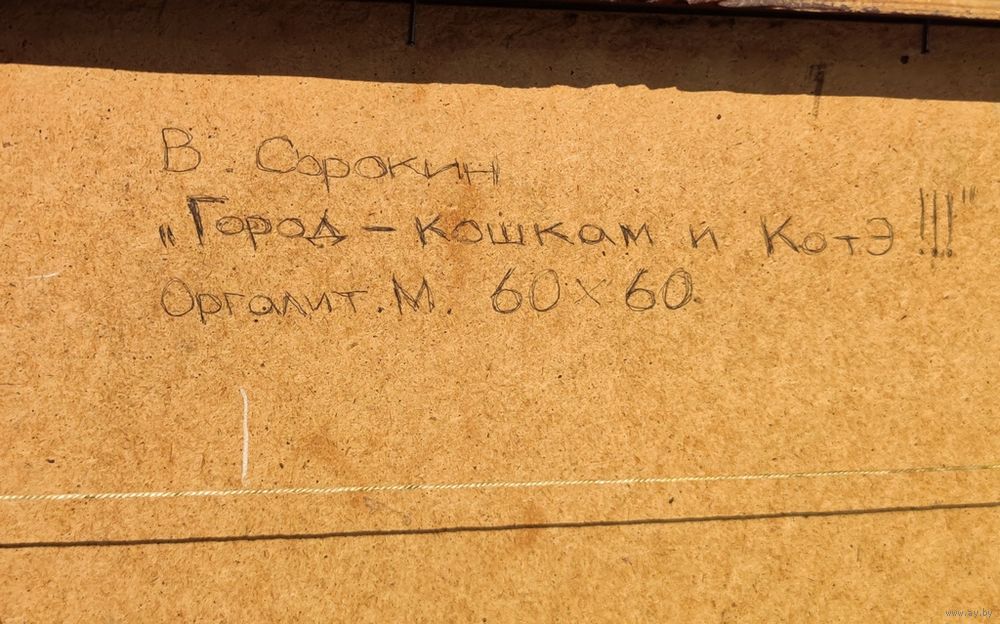 В. Сорокин
„Город - кошкам и КотЭ!!!"
Оргалит. М. 60×60.
www.ay.by